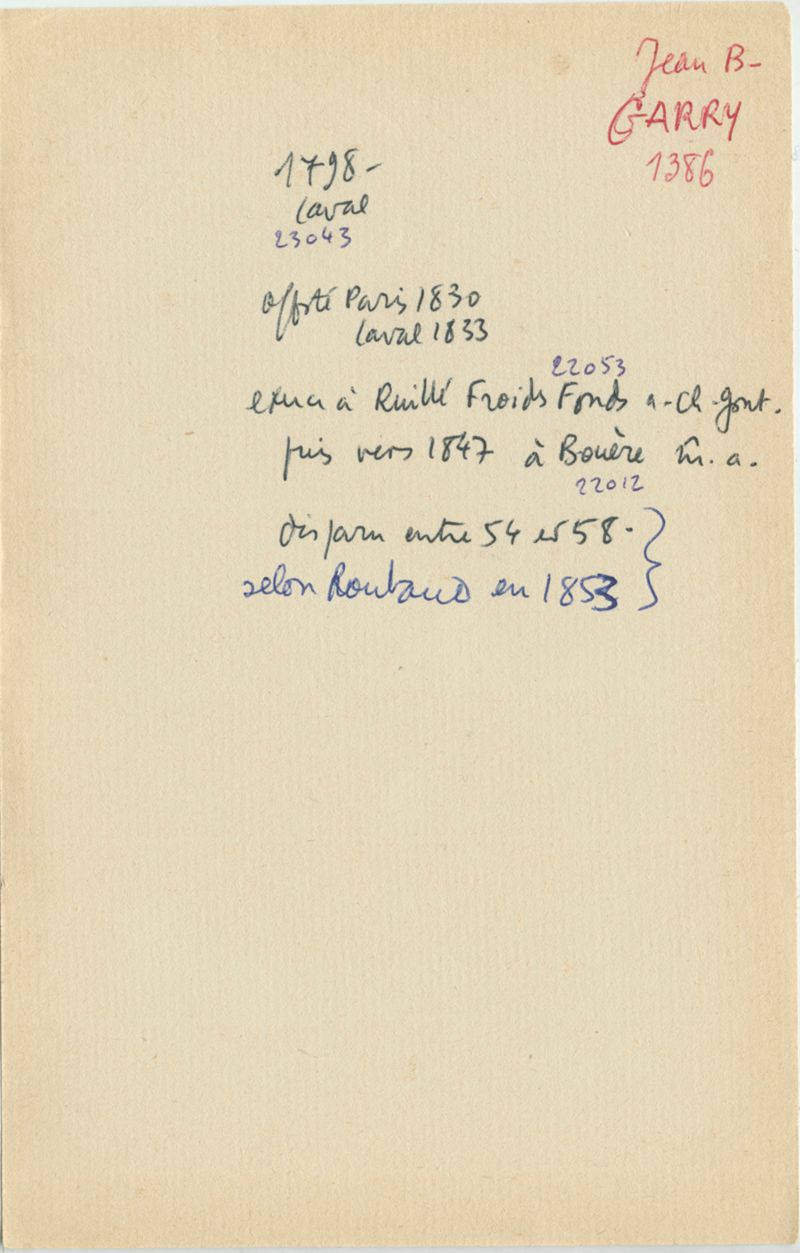 Jean B-
GARRY
1386
1798-
Laval
23043
offté Paris 1830
Laval 1833
22053
exerce à Ruillé Froids Fonds a-Ch-Gont.
puis vers 1847 à Bouère m. a.
22012
disparu entre 54 et 58-
selon Roubaud en 1853